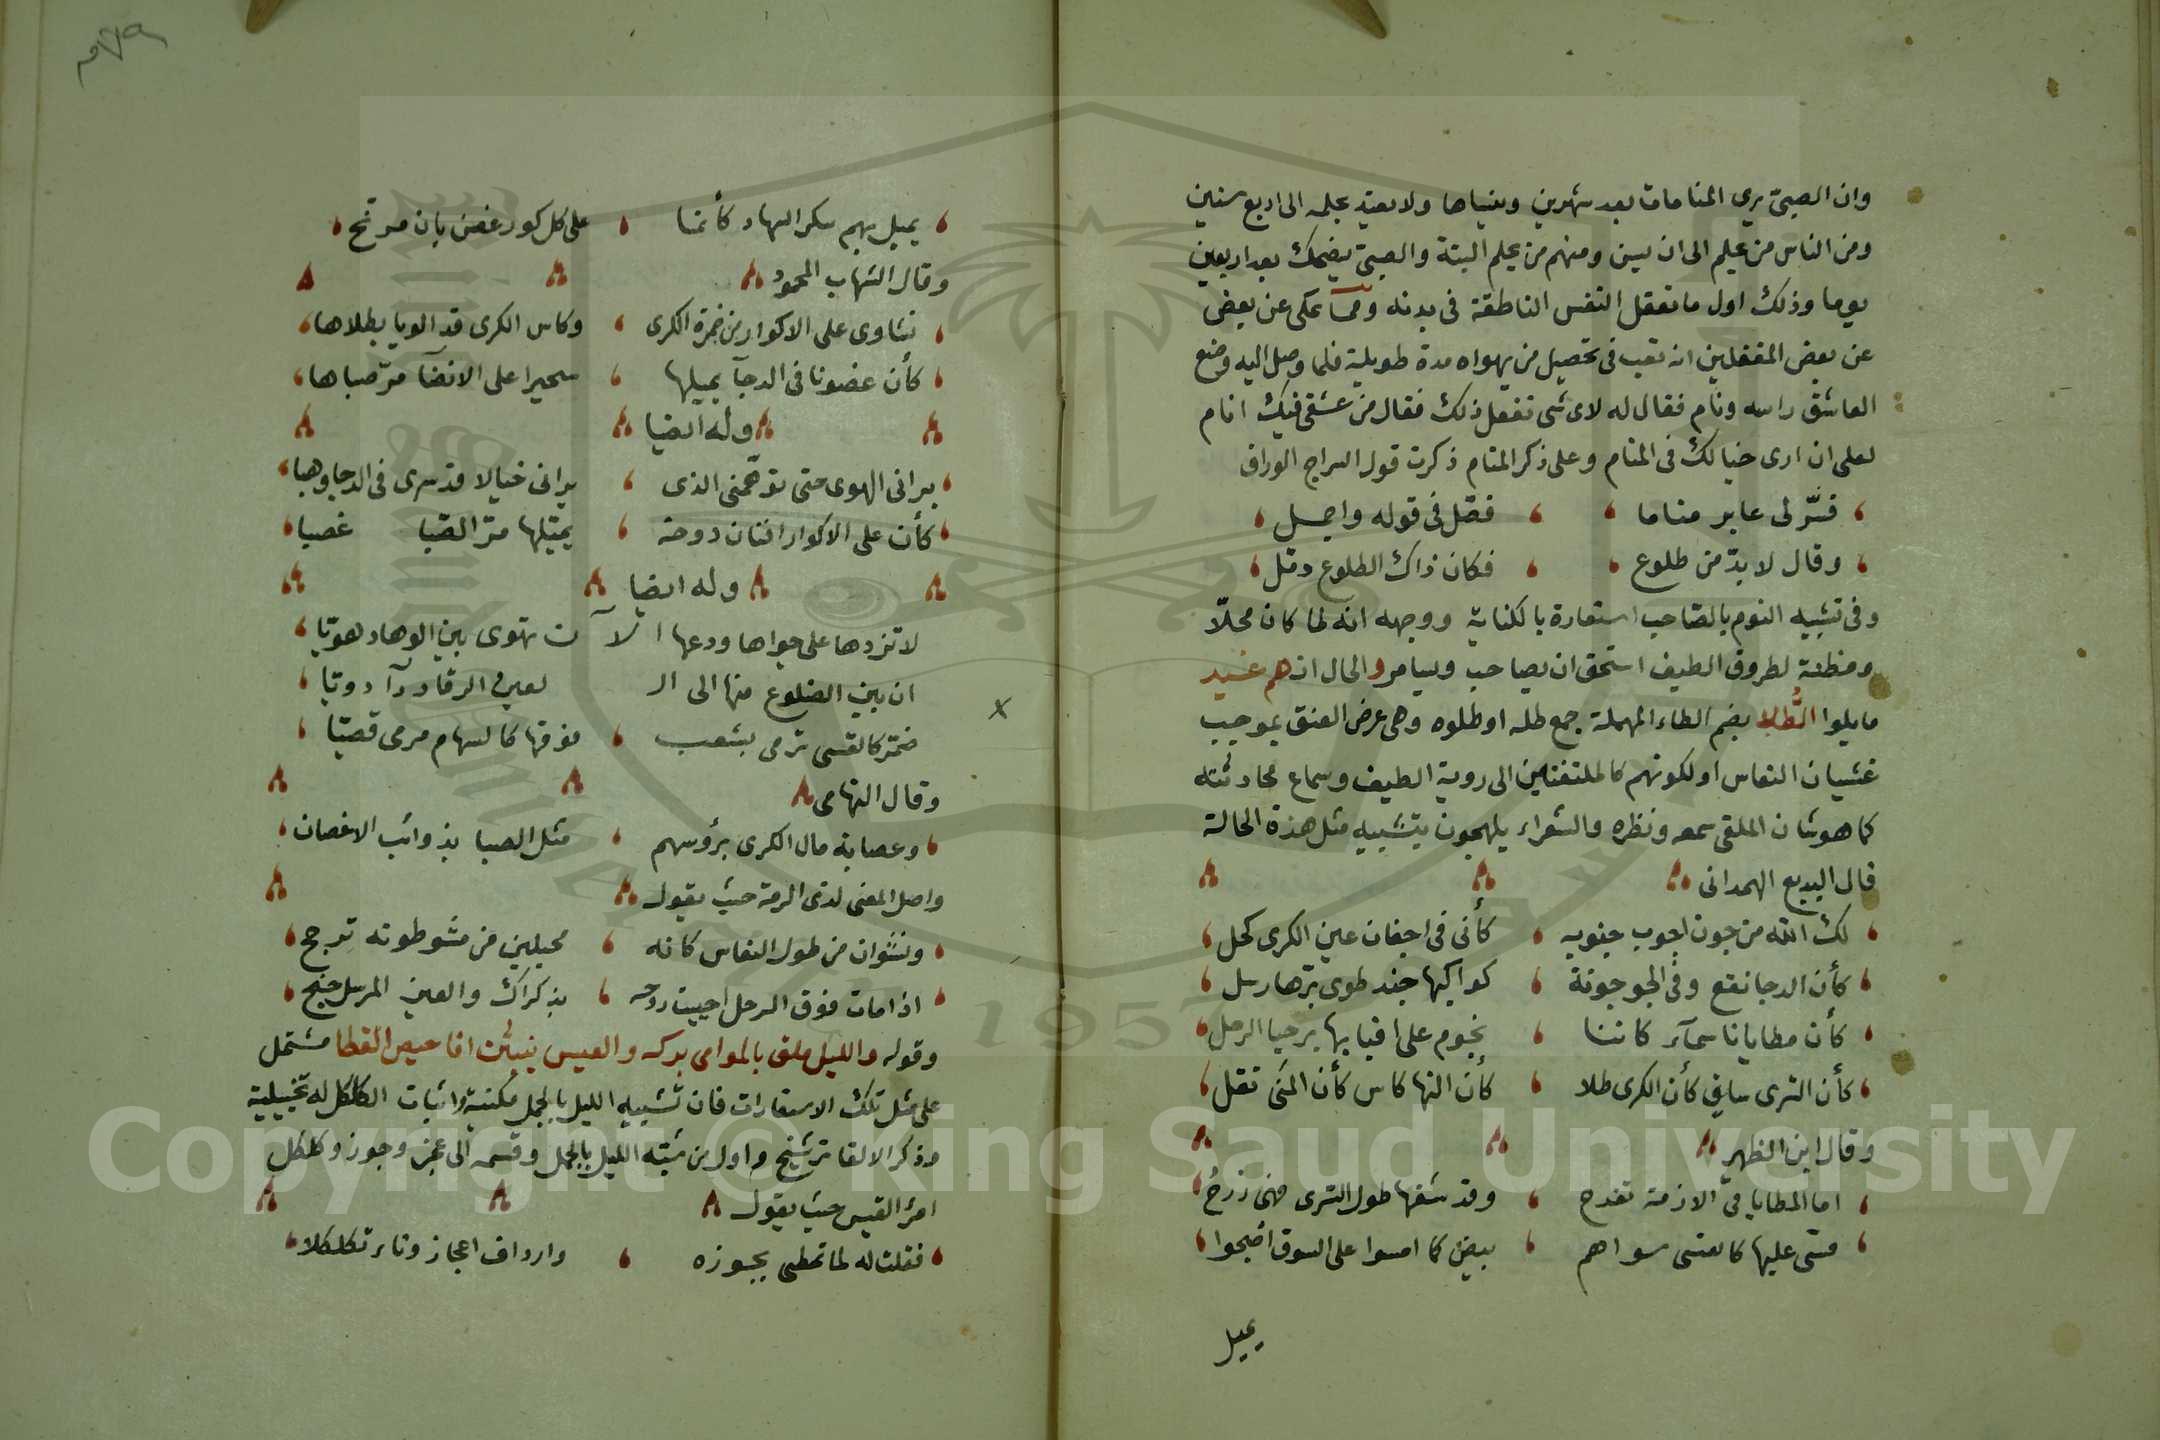 وان الصبيّ يري المنامات بعد شهرين وينساها ولا يعتد بحلمه الى اربع سنين
ومن الناس من يحلم الى ان يسن ومنهم من يحلم البتة والصبيّ يضحك بعد اربعين
يوما وذلك اول ما تعقل النفس الناطقة فى بدنه ومما يحكى عن بعض
عن بعض المغفلين انه تعب فى تحصيل من يهواه مدة طويلة فلما وصل اليه وضع
العاشق راسه ونام فقال له لاى شى تفعل ذلك فقال من عشقى فيك انام
لعلى ان ارى خيالك فى المنام وعلى ذكر المنام ذكرت قول السراج الوراق
فسّر لى عابر مناما فصّل فى قوله واجمل
وقال لا بدّ من طلوع فكان ذاك الطلوع دمّل
وفى تشبيه النوم بالصّاحب استعارة بالكناية ووجهه انه لما كان محلّا
ومظنة لطروق الطيف استحق ان يصاحب ويسامر والحال ان هم غيد
مايلوا الطُّلا بضم الطاء المهملة جمع طله او طلوه وهى عرض العنق بموجب
غشيان النعاس او لكونهم كالملتفتين الى روية الطيف وسماع محادثته
كما هو شان الملقى سمعه ونظره والشعراء يلهجون بتشبيه مثل هذة الحالة
قال البديع الهمدانى
لك الله من جون اجوب جنوبه كأنى فى اجفان عين الكرى كحل
كأن الدجا نقع وفى الجو جونة كواكبها جند طوى برّها رسل
كأن مطايانا سمآء كاننا نجوم على اقتابها برحيا الرحل
كأن السرى ساق كأن الكرى طلا كأن النها كاس كأن المنى نقل
وقال ابن الظهير
اما المطايا فى الازمة تقدح وقد شفها طول السرى فهى رزحُ
قسّى عليها كالقسى سواهم ببيض كا امسوا على السوق اضبحوا
يميل
يميل بهم سكر السهاد كأنما على كل كور غصن بان مرنّح
وقال الشهاب المحمود
نشاوى على الاكوار من خمرة الكرى وكاس الكرى قد الويا بطلاها
كأن غصونا فى الدجآ يميلها سحيرا على الانضآ مرّ صباها
وله ايضا
برانى الهوى حتى توهّمنى الذى يرانى خيالا قد سرى فى الدجا وهبا
كأن على الاكوار افنان دوحة يميّلها مرّ الصّبا غصبا
وله ايضا
لا تزدها على جواها ودعها الآ ن تهوى بين الوهاد هويّا
ان بين الضلوع منها الى الر
ضمّر كالقسى ترمى بشعب فوقها كالسهام مرمى قصيّا
وقال التهامى
وعصابة مال الكرى برؤسهم مثل الصبا بذوائب الاغصان
واصل المعنى لذى الرمة حيث يقول
ونشوان من طول النعاس كانه بحبلين من مشوطونه ترجح
اذا مات فوق الرحل احييت روحه بذكراك والعين المرسل جنح
وقوله والليل ملق بالموامى بركه والعيس ينبثن افاحيص القطا مشتمل
على مثل تلك الاستعارات فان تشبيه الليل بالجمل مكنية واثبات الكلكل له تخييلية
وذكر الالقا ترشيح واول من شبّه الليل بالجمل وقسمه الى عجز وجوز وكلكل
امرؤ القيس حيث يقول
فقلت له لما تمطى بجوزه وارداف اعجاز وناء تكلكلا
Copyright © King Saud University
1957